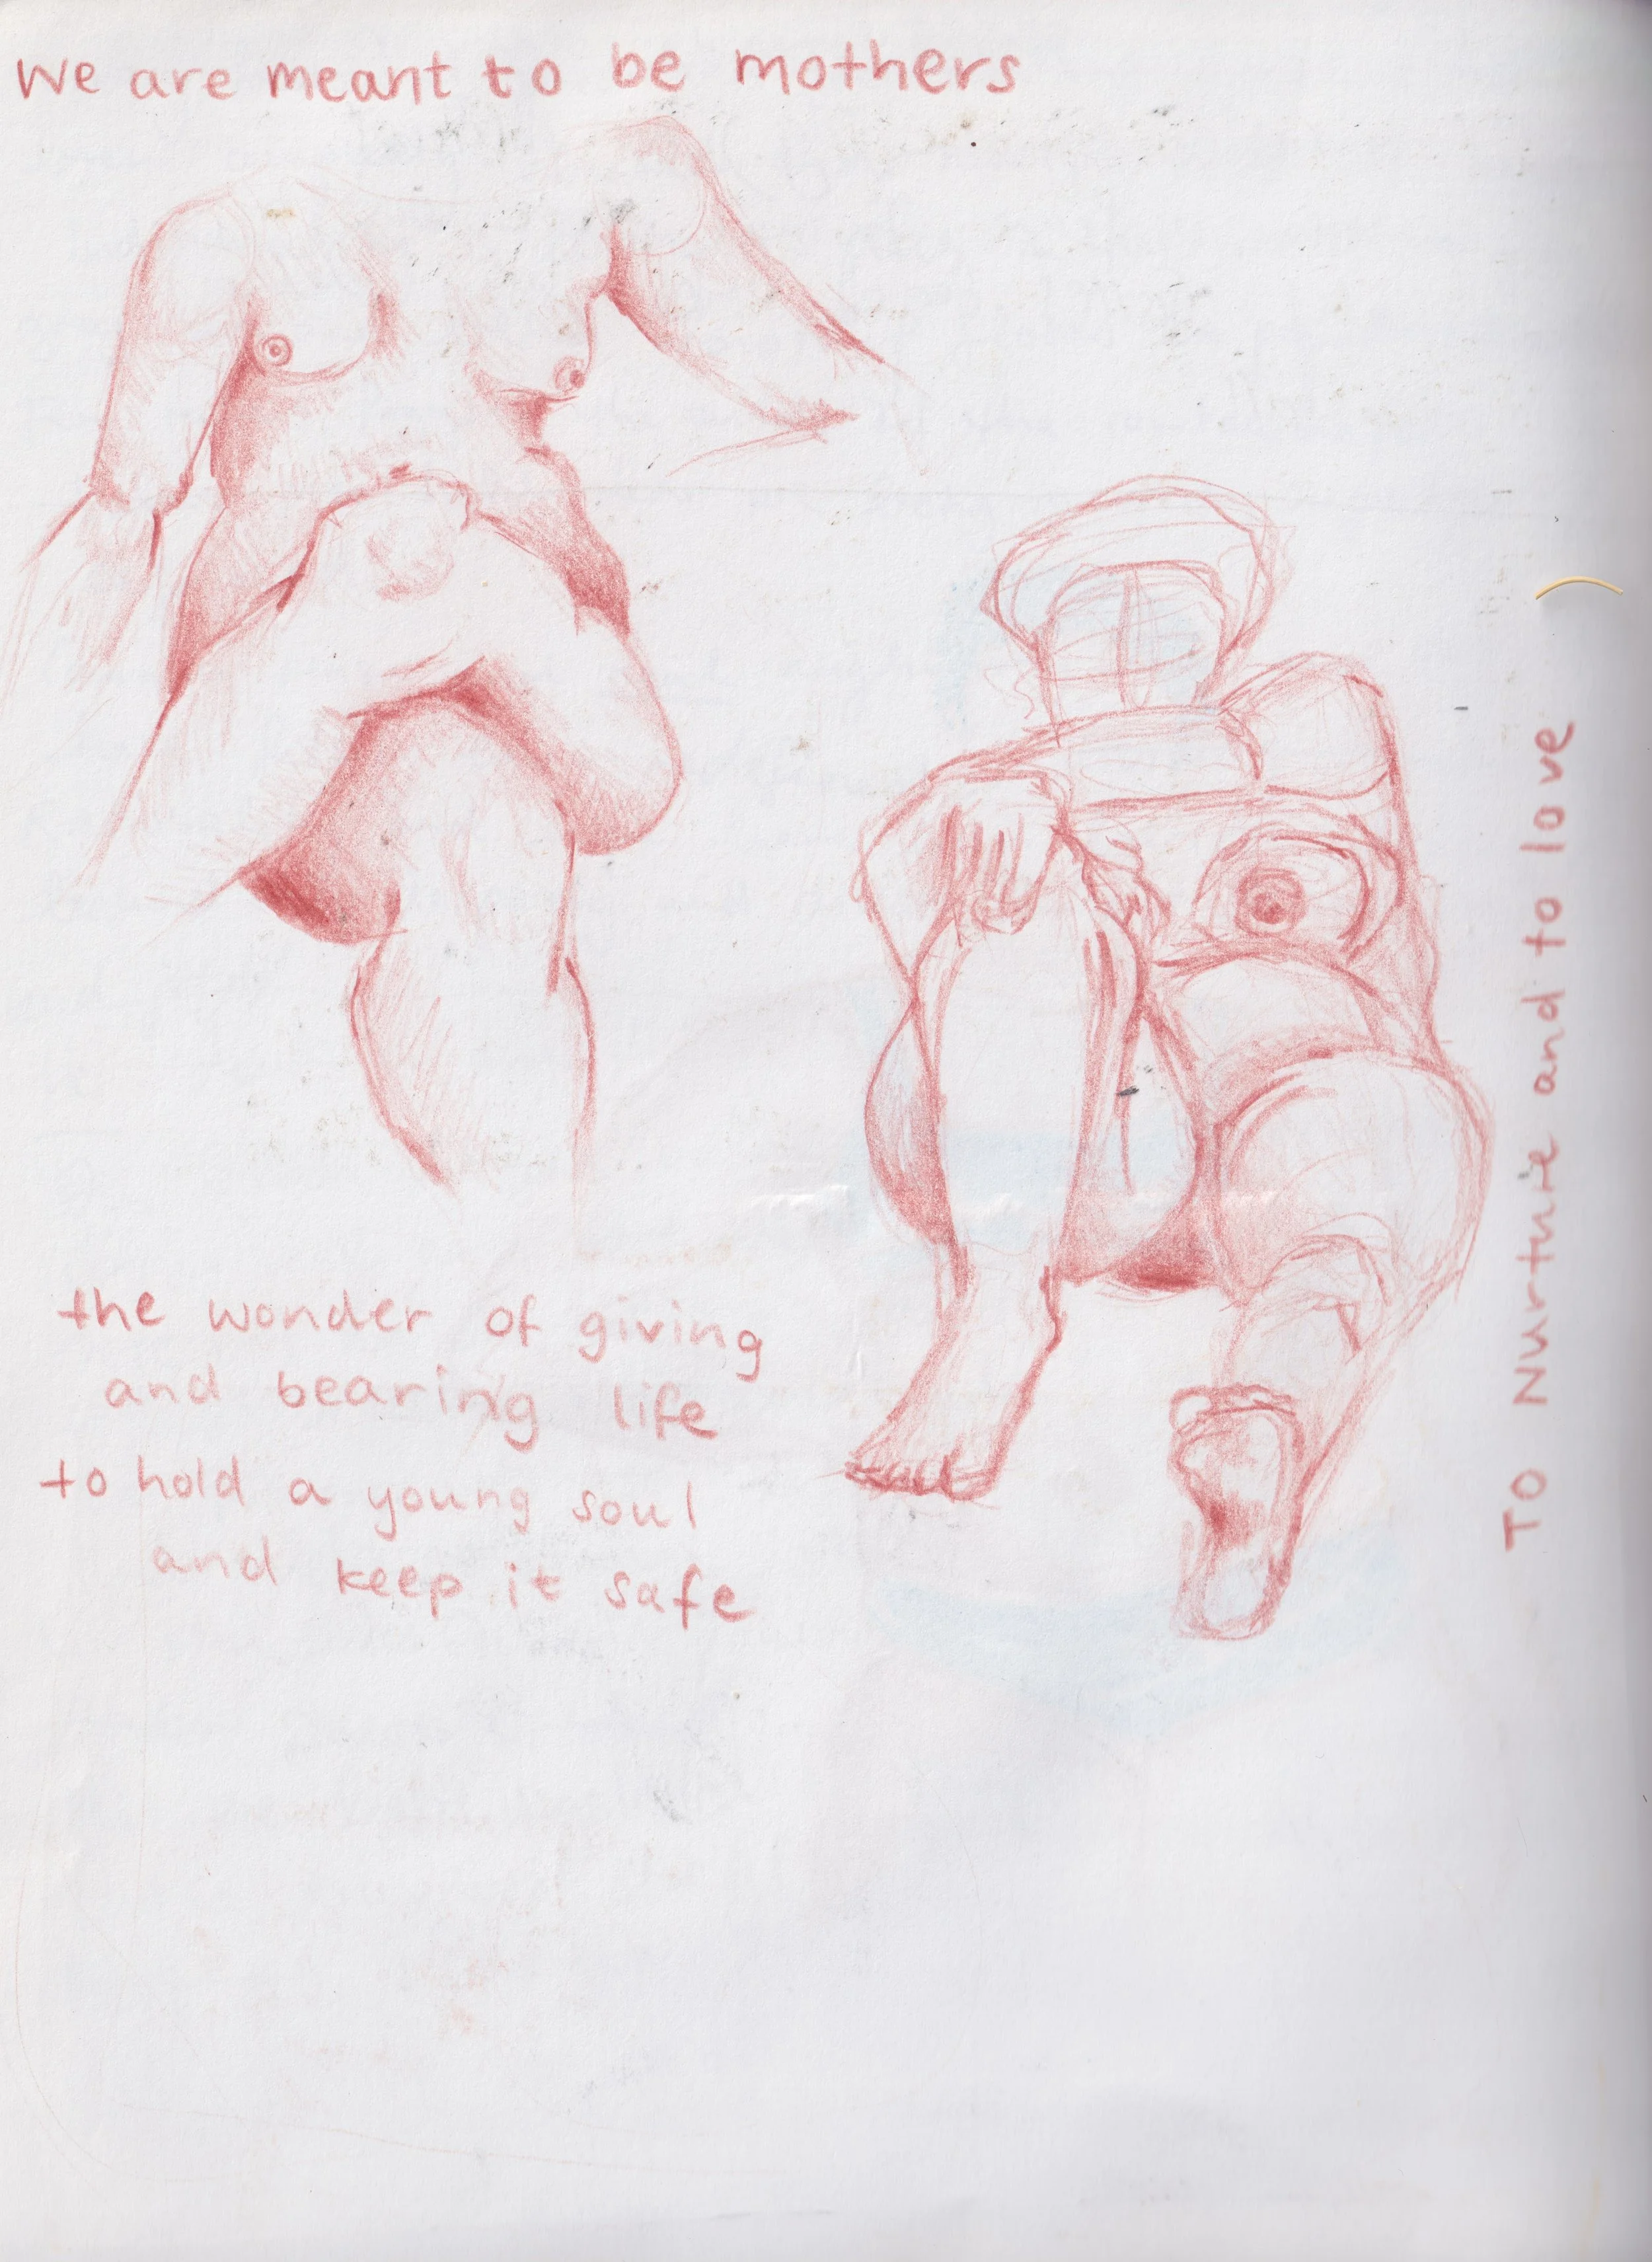 We are meant to be mothers
the wonder of giving
and bearing life
to hold a young soul
and keep it safe
To Nurture and to love